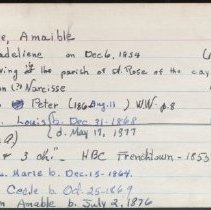 e, Amaible
adeliene on Dec 6, 1854 (
ving at the parish of St. Rose of the cay
on (?) Narcisse
Peter (186 Aug. 11) W.W. p. 8
Louis b. Dec 31-1868
a) (d. May 17, 1977
& 3 chi" - HBC Frenchtown - 1853
s. Marie b. Dec. 13-1864.
Cecile b Oct. 25-1869
n Amable b. July 2, 1876